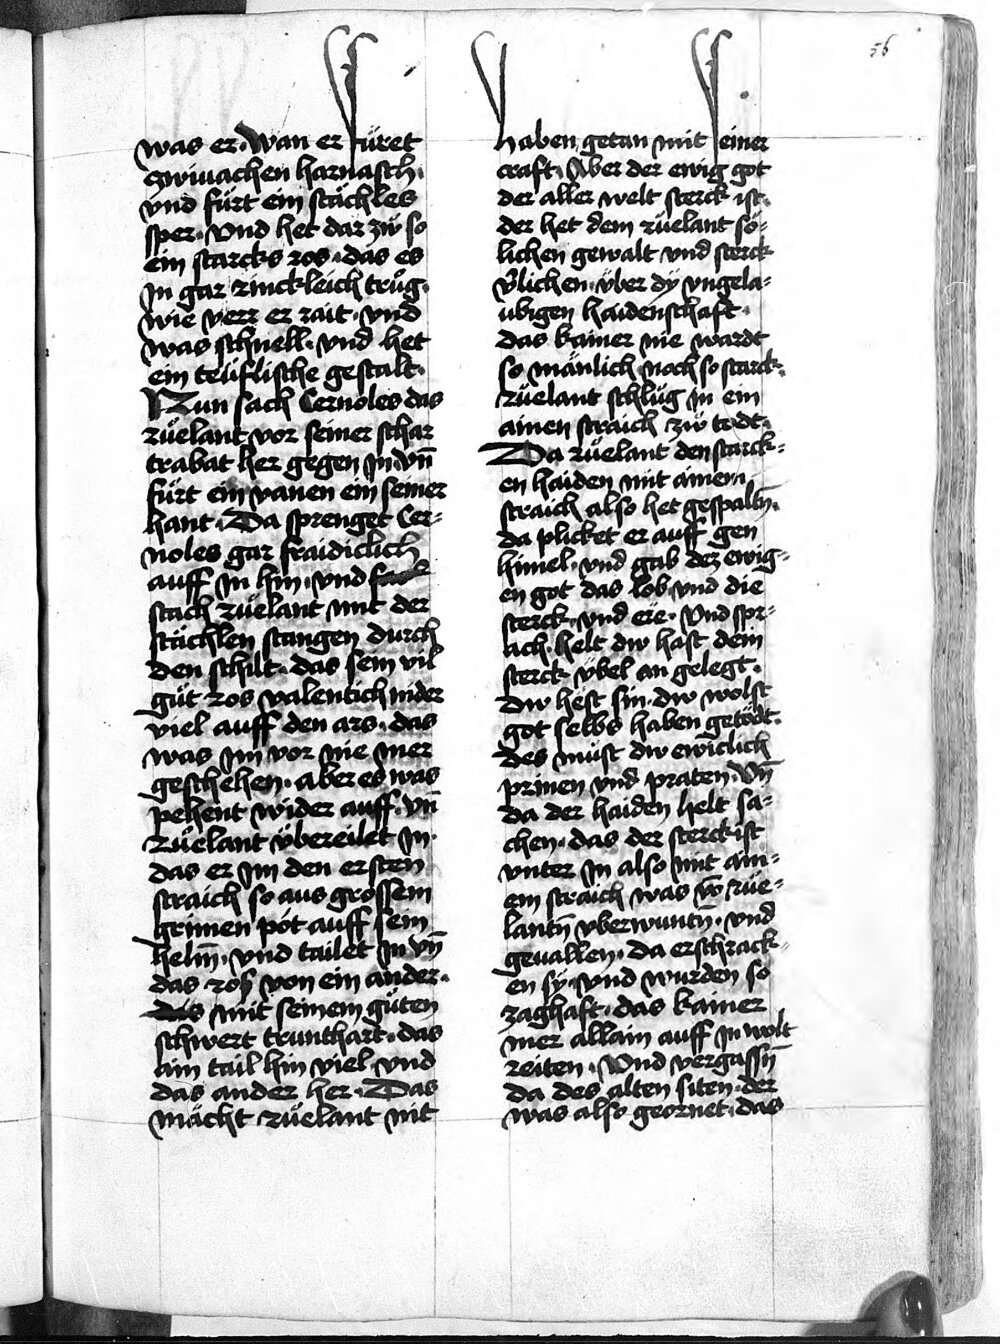 56
was er · Wan er füret
zwivachen harnasch ·
vnd fürt ein stächles
sper · Vnd het dar zů so
ein starcks ros · das es
jn gar rinckleich trůg ·
wie verr er rait · vnd
was schnell · vnd het
ein teüflische gestalt ·
Nun sach Cernoles das
růelant vor seiner schar
trabat her gegen jn · vn̄
fürt ein vanen ein seiner
hant · Da sprenget Cer=
noles gar fraidiclich
auff jn hin · vnd
stach růelant mit der
stächlen stangen durch
den schilt · das sein vil
gůt ros valentich nider
viel auff den ars · das
was jm vor nie mer
geschehen · aber es was
pehent wider auff · vn̄
Růelant übereilet jn ·
das er jm den ersten
straich so aus grossem
grimen pot auff sein
helm̄ · vnd tailet jn vn̄
das roß von ein ander ·
mit seinem gůten
schwert trunthart · das
ain tail hin viel vnd
das ander her · Das
mächt růelant nit
haben getan mit seiner
craft · Aber der ewig got
der aller welt sterck ist ·
der het dem růelant sö=
lichen gewalt vnd sterck
v̈lichen · v̈ber dÿ vngela=
ubigen haidenschaft ·
das kainer nie wardt
so mänlich noch so starck ·
růelant schlůg jn ein
ainen straich zů todt ·
Da růelant den starck=
en haiden mit ainem
straich also het gespaltn̄ ·
da plicket er auff gen
himel · vnd gab dez ewig=
en got das lob · vnd die
sterck · vnd ere · Vnd spr=
ach · helt dw hast dein
sterck v̈bel an gelegt ·
Dw hest sin · dw wolst
got selbs haben getödt ·
des můst dw ewiclich
prinen vnd praten · Vn̄
da der haiden helt sa=
chen · das der sterckist
vnter jn also mit ain=
em straich was vō rüe=
lantn̄ vberwuntn̄ · vnd
geuallen · da erschrack=
en sÿ · vnd wurden so
zaghaft · das kainer
mer allain auff jn wolt
reiten · Vnd vergassn̄
da des alten siten · der
was also geornet · das